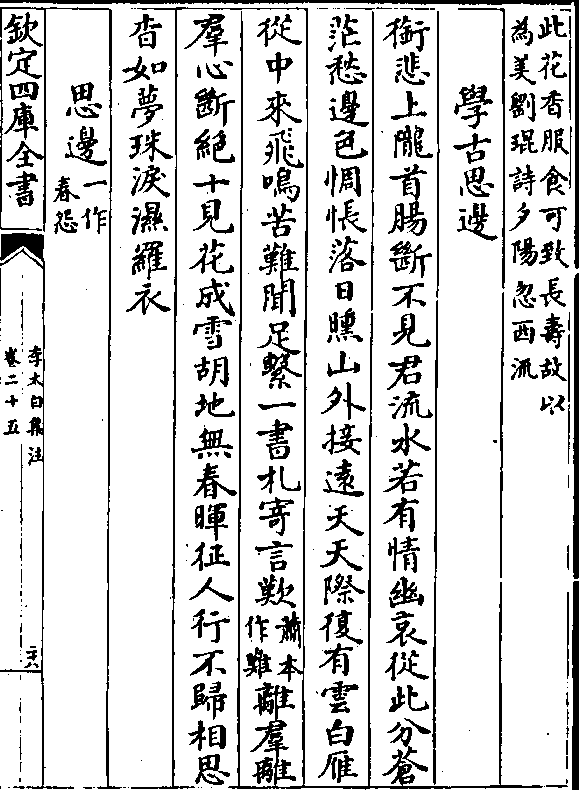 此花香服食可致長壽故以
為美劉琨詩夕陽忽西流
學古思邊
銜悲上隴首腸斷不見君流水若有情幽哀從此分蒼
茫愁邊色惆悵落日曛山外接遠天天際復有雲白雁
從中來飛鳴苦難聞足繫一書札寄言歎蕭本作難離羣離
羣心斷絕十見花成雪胡地無春暉征人行不歸相思
杳如夢珠淚濕羅衣
思邊一作春怨
欽定四庫全書
李太白集注
卷二十五